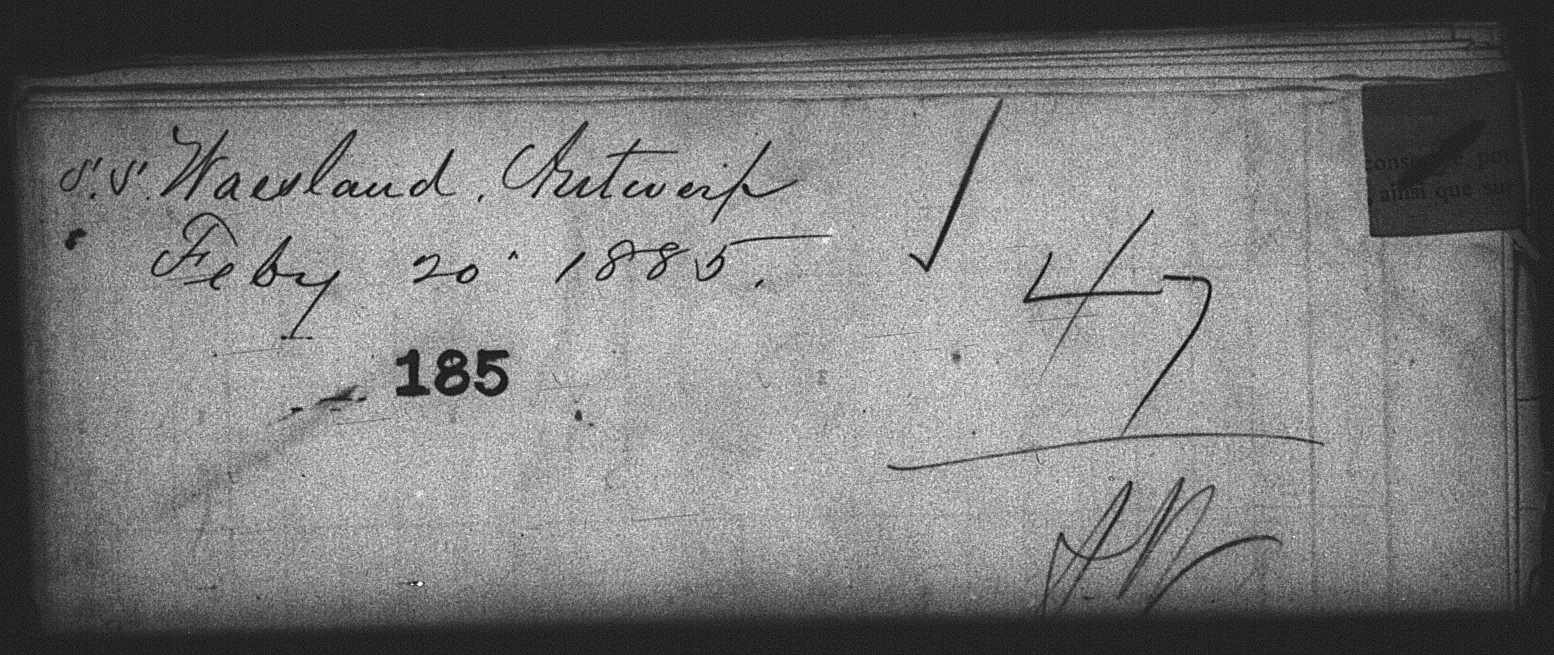 S.S. Waesland. Antwerp
Feby 20. 1885.
185
47
ainsi que su